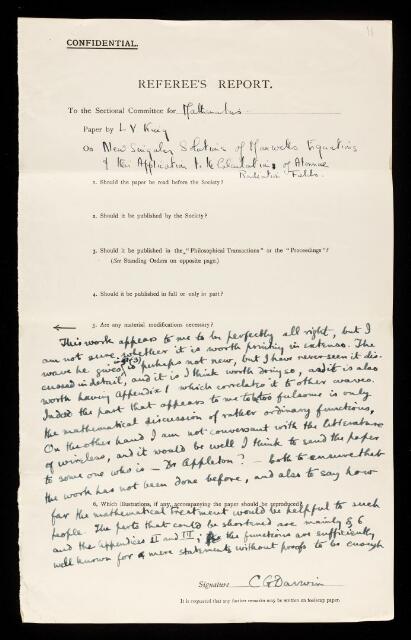 CONFIDENTIAL.
REFEREE'S REPORT.
To the Sectional Committee for Mathematics
Paper by L V King
On New Singular Solutions of Maxwells Equations
& their Application to the Calculation of Atomic
Radiation Fields.
1. Should the paper be read before the Society?
2. Should it be published by the Society?
3. Should it be published in the "Philosophical Transactions" or the "Proceedings"?
(See Standing Orders on opposite page.)
4. Should it be published in full or only in part?
5. Are any material modifications necessary?
This work appears to me to be perfectly all right, but I
am not sure whether it is worth printing in extenso. The
wave he gives in (3) is perhaps not new, but I have never seen it dis-
cussed in detail, and it is I think worth doing so, and it is also
worth having Appendix I which correlates it to other waves.
Indeed the part that appears to me too fulsome is only
the mathematical discussion of rather ordinary functions,
On the other hand I am not conversant with the literature
of wireless, and it would be well I think to send the paper
to some one who is — Dr Appleton? — both to ensure that
the work has not been done before, and also to say how
6. Which illustrations, if any, accompanying the paper should be reproduced?
far the mathematical treatment would be helpful to such
people. The parts that could be shortened are mainly § 6
and the appendices II and III; the functions are sufficiently
well known for a mere statement without proofs to be enough
Signature C G Darwin
It is requested that any further remarks may be written on foolscap paper.